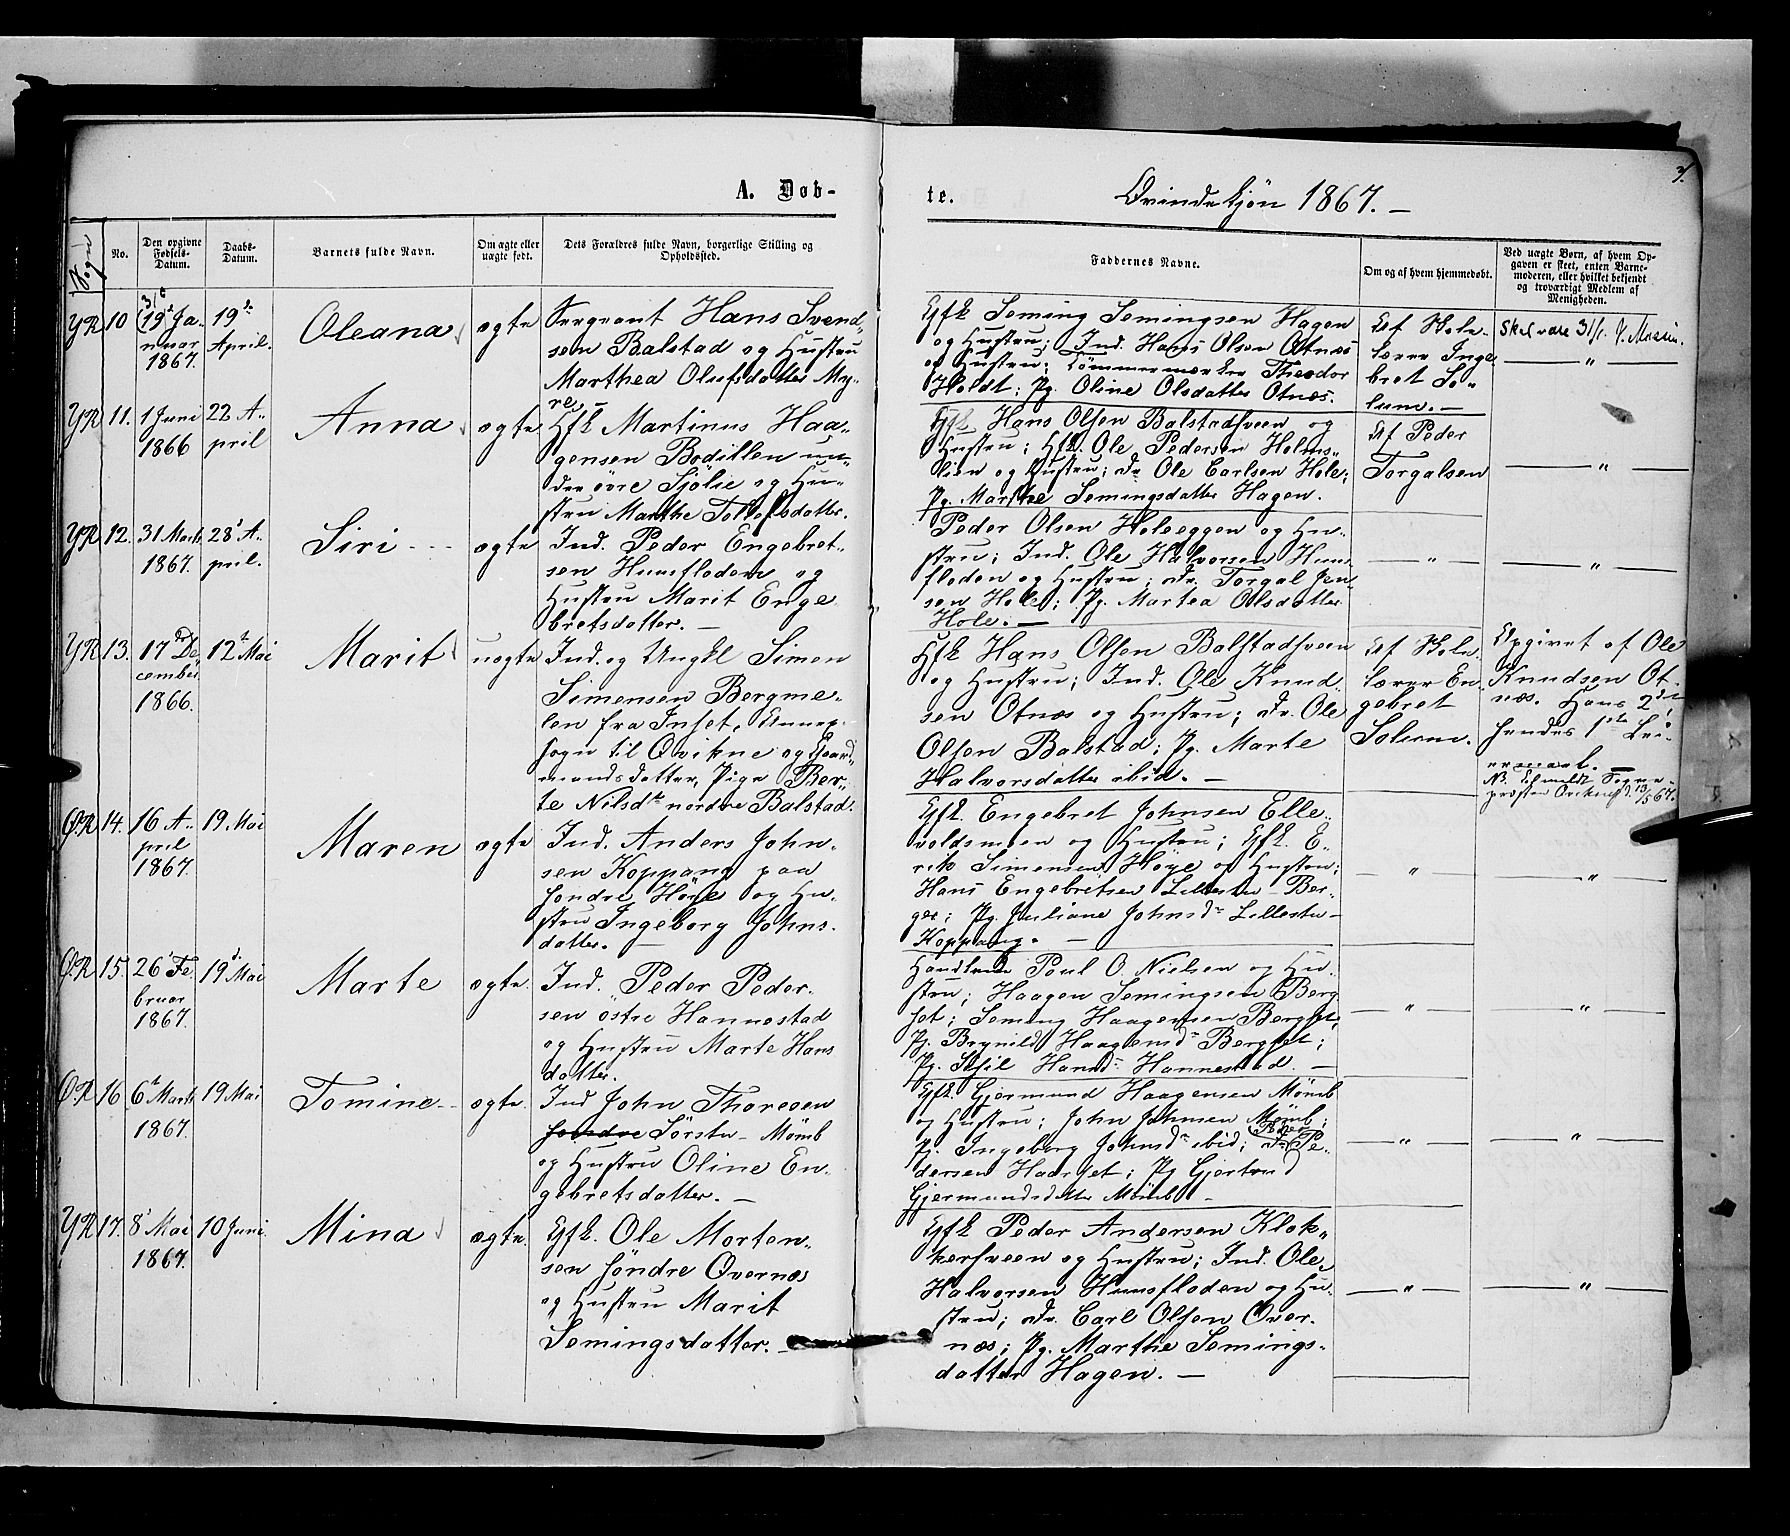 3.
A. Døb-
te.
Qvindekjøn 1867. —
Sogn
No.
Den opgivne
Fødsels-
Datum.
Daabs-
Datum.
Barnets fulde Navn.
Om ægte eller
uægte født.
Dets Forældres fulde Navn, borgerlige Stilling og
Opholdssted.
Faddernes Navne.
Om og af hvem hjemmedøbt.
Ved uægte Børn, af hvem Op-
gaven er skeet, enten Barne-
moderen, eller hvilket bekjendt
og troværdigt Medlem af
Menigheden.
YR
10
31/1
19d Ja-
nuar
1867.
19de
April.
Oleana
ægte
Sergeant Hans Svend-
sen Balstad og Hustru
Marthea Olufsdatter My-
re. —
Gfk Seming Semingsen Hagen
og Hustru; Ind. Hans Olsen Otnæs
og Hustru; Tømmermærker Theodor
Holdt; Pg. Oline Olsdatter Otnæs.
Af Skole-
lærer Inge-
bret So-
lum. —
Skal være 31/1
— " —
YR
11.
1 Juni
1866
22 A-
pril
Anna
ægte
Hfk Martinus Haa-
gensen Bodillen un-
der øvre Sjölie og Hu-
stru Marthe Tollefsdatter.
Gfk Hans Olsen Balstadsveen og
Hustru; Hfk. Ole Pedersen Holms-
lien og Hustru; Dr. Ole Carlsen Hole;
Pg. Marthe Semingsdatter Hagen.
Af Peder
Torgalsen
— " —
YR
12.
31 Marts
1867.
28' A-
pril.
Siri
ægte
Ind. Peder Engebret-
sen Hunsfloden og
Hustru Marit Enge
bretsdatter. —
Peder Olsen Holeeggen og Hu-
stru; Ind. Ole Halvorsen Huns-
floden og Hustru; Dr. Torgal Jen-
sen Hole; Pg. Martea Olsdatter
Hole. —
— " —
— " —
YR
13.
17de De-
cember
1866.
12te Mai
Marit
uægte
Ind. og Ungkl Simen
Simensen Bergme-
len fra Inset, Annex-
sogn til Qvikne og Gaard-
mandsdatter, Pige Ber-
te Nilsdtr nordre Balstad.
Hfk Hans Olsen Balstadsveen
og Hustru; Ind. Ole Knud-
sen Otnæs og Hustru; Dr. Ole
Olsen Balstad; Pg. Marte
Halvorsdatter ibid. —
Af Skole-
lærer En-
gebret
Solum.
Opgivet af Ole
Knudsen Ot-
næs. Hans 2det
hendes 1ste Lei-
ermaal. —
NB. Anmeldt Sogne-
præsten Qvikne d. 13/5 67.
ØR
14.
16 A-
pril
1867.
19. Mai
Maren
ægte
Ind. Anders John-
sen Koppang paa
søndre Höye og Hu-
stru Ingeborg Johns-
datter. —
Gfk. Engebret Johnsen Elle-
voldsmoen og Hustru; Gfk. E-
rik Simensen Höye og Hustru;
Hans Engebretsen Lillestu Ber-
ger; Pg. Juliane Johnsdr Lillestu-
Koppang. —
— " —
— " —
ØR
15.
26' Fe-
bruar
1867.
19d Mai
Marte
ægte.
Ind. Peder Peder-
sen östre Hannestad
og Hustru Marte Hans
datter.
Handlende Poul O. Nielsen og Hu-
stru; Haagen Semingsen Berg-
set; Seming Haagensen Bergset;
Pg. Brynild Haagensdr Bergset;
Pg. Kjil Hansdr Hannestad. —
— " —
— " —
ØR
16
6te Marts
1867.
19 Mai
Tomine
ægte.
Ind John Thoresen
søndre Sörstu- Mömb
og Hustru Oline En-
gebretsdatter. —
Gfk. Gjermund Haagensen Mömb
og Hustru; John Johnsen Mömb;
Pg. Ingeborg Johnsdr ibid; Dr. Pe-
dersen Haarset; Pg Gjertrud
Gjermundsdatter Mömb —
— " —
— " —
YR
17.
8' Mai
1867.
10 Juni.
Mina
ægte.
Gfk. Ole Morten-
sen søndre Overnæs
og Hustru Marit
Semingsdatter. —
Gfk Peder Andersen Klok-
kersveen og Hustru; Ind. Ole
Halvorsen Hunsfloden og Hu-
stru; Dr. Carl Olsen Over-
næs; Pg. Marthe Semings-
datter Hagen. —
— " —
— " —